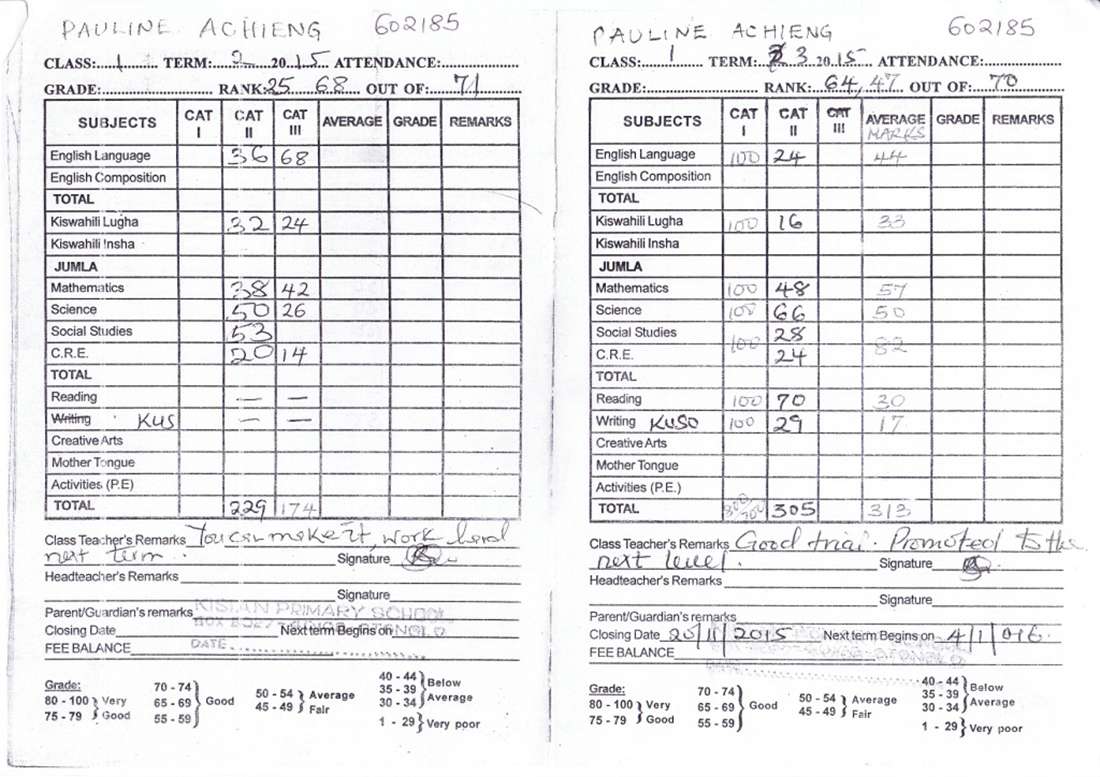 PAULINE ACHIENG 602185
CLASS: 1 TERM: 2 2015 ATTENDANCE:
GRADE: RANK: 25 68 OUT OF: 71
SUBJECTS CAT I CAT II CAT III AVERAGE GRADE REMARKS
English Language 36 68
English Composition
TOTAL
Kiswahili Lugha 32 24
Kiswahili Insha
JUMLA
Mathematics 38 42
Science 50 26
Social Studies 53
C.R.E. 20 14
TOTAL
Reading — —
Writing KUS — —
Creative Arts
Mother Tongue
Activities (P.E)
TOTAL 229 174
Class Teacher's Remarks You can make it, work hard
next term. Signature
Headteacher's Remarks
Signature
Parent/Guardian's remarks KISIAN PRIMARY SCHOOL
Closing Date Next term Begins on
FEE BALANCE DATE
Grade:
80 - 100 } Very
75 - 79 } Good
70 - 74
65 - 69 } Good
55 - 59
50 - 54 } Average
45 - 49 } Fair
40 - 44
35 - 39 } Below
30 - 34 } Average
1 - 29 } Very poor
PAULINE ACHIENG 602185
CLASS: 1 TERM: 3 2015 ATTENDANCE:
GRADE: RANK: 64, 47 OUT OF: 70
SUBJECTS CAT I CAT II CAT III AVERAGE MARKS GRADE REMARKS
English Language 100 24 44
English Composition
TOTAL
Kiswahili Lugha 100 16 33
Kiswahili Insha
JUMLA
Mathematics 100 48 57
Science 100 66 50
Social Studies 28
100 82
C.R.E. 24
TOTAL
Reading 100 70 30
Writing KUSO 100 29 17
Creative Arts
Mother Tongue
Activities (P.E.)
TOTAL 305 313
Class Teacher's Remarks Good trial. Promoted to the
next level. Signature
Headteacher's Remarks
Signature
Parent/Guardian's remarks
Closing Date 20/11/2015 Next term Begins on 4/1/016.
FEE BALANCE
Grade:
80 - 100 } Very
75 - 79 } Good
70 - 74
65 - 69 } Good
55 - 59
50 - 54 } Average
45 - 49 } Fair
40 - 44
35 - 39 } Below
30 - 34 } Average
1 - 29 } Very poor